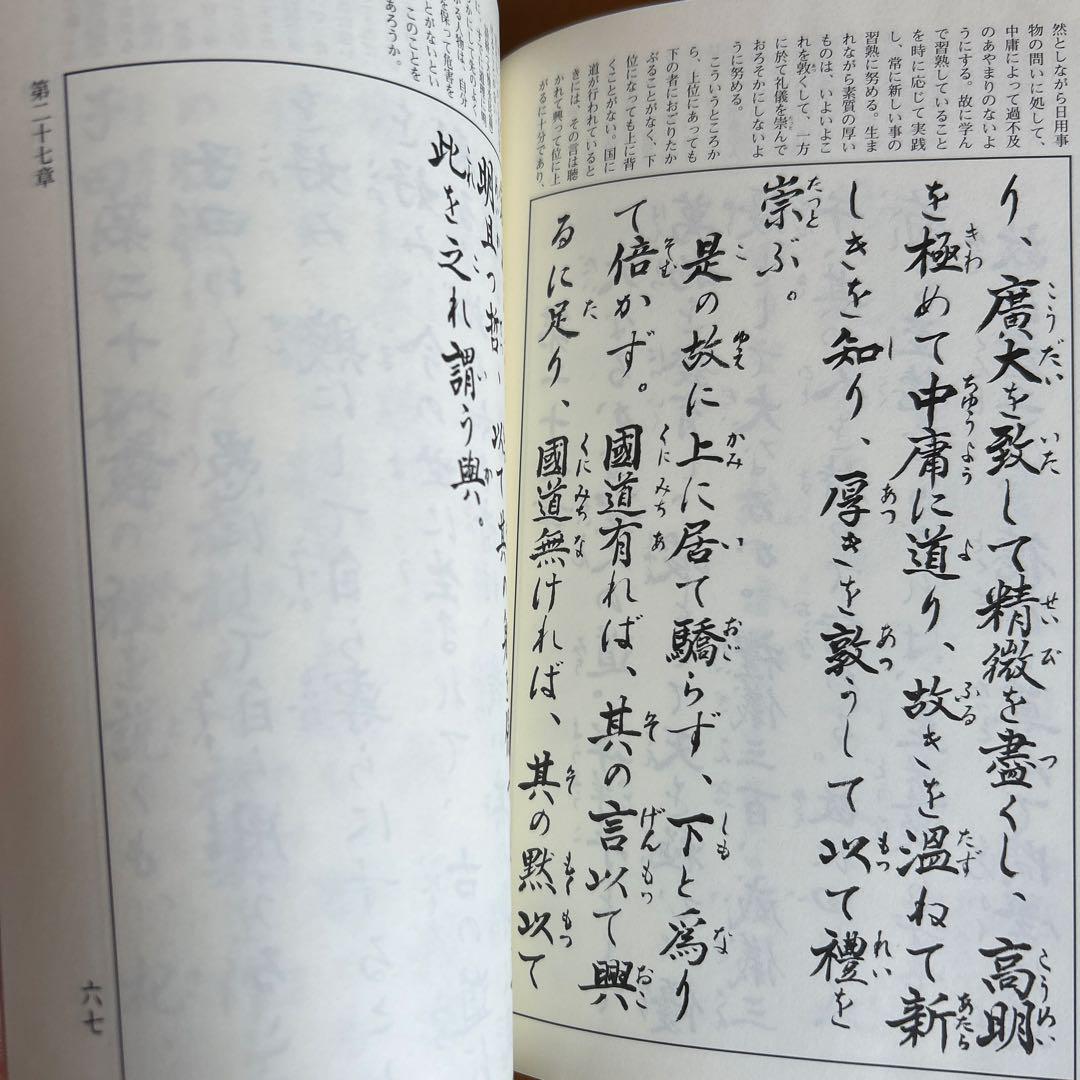 然としながら日用事
物の問いに処して、
中庸によって過不及
のあやまりのないよ
うにする。故に学ん
で習熟していること
を時に応じて実践
し、常に新しい事の
習熟に努める。生ま
れながら素質の厚い
ものは、いよいよこ
れを敦くして、一方
に於て礼儀を崇んで
おろそかにしないよ
うに努める。
こういうところか
ら、上位にあっても
下の者におごりたか
ぶることがなく、下
位になっても上に背
くことがない。国に
道が行われていると
きには、その言は聴
かれて興って位に上
がるに十分であり、
り、廣大を致して精微を盡くし、高明
を極めて中庸に道り、故きを温ねて新
しきを知り、厚きを敦うして以て禮を
崇ぶ。
是の故に上に居て驕らず、下と爲り
て倍かず。國道有れば、其の言以て興
るに足り、國道無ければ、其の黙以て
を保って危害を
とがないとい
このことを
あろうか。
明且つ哲、以て其の
此を之れ謂う與。
第二十七章
六七